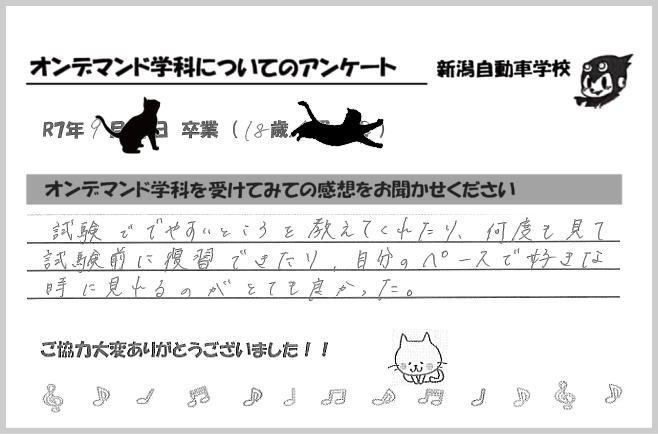 オンデマンド学科についてのアンケート 新潟自動車学校
R7年 9月 日 卒業 ( 18歳 )
オンデマンド学科を受けてみての感想をお聞かせください
試験ででやすいところを教えてくれたり、何度も見て
試験前に復習できたり、自分のペースで好きな
時に見れるのがとても良かった。
ご協力大変ありがとうございました！！